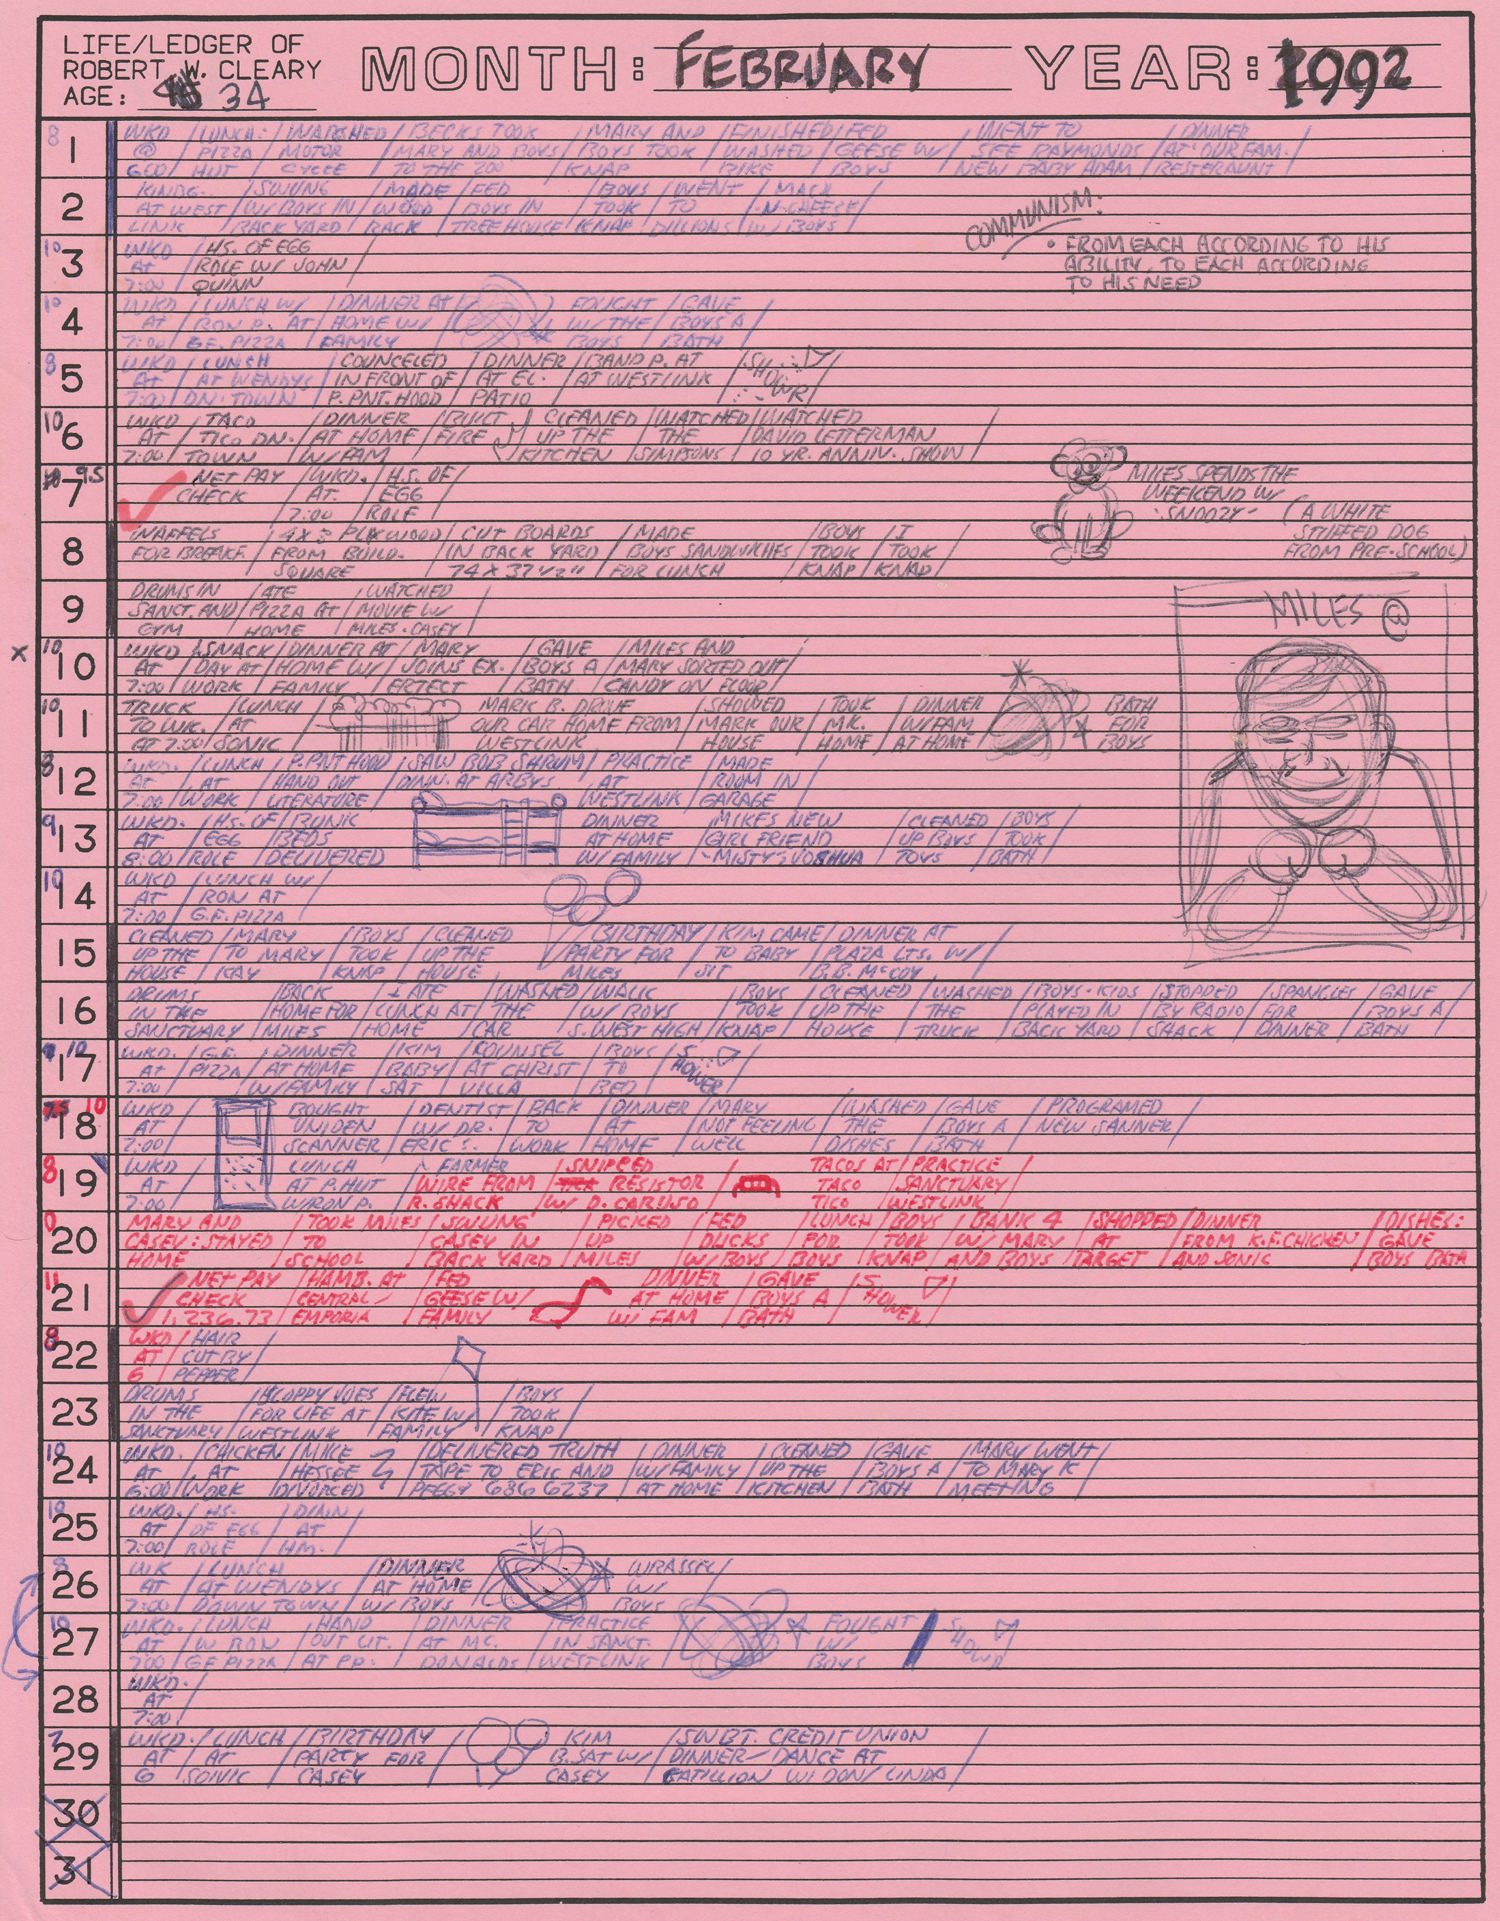 LIFE/LEDGER OF
ROBERT W. CLEARY
AGE: 34
MONTH: FEBRUARY YEAR: 1992
8
1
WKD / LUNCH: / WATCHED / BECKS TOOK / MARY AND / FINISHED / FED / WENT TO / DINNER
@ / PIZZA / MOTOR / MARY AND BOYS / BOYS TOOK / WASHED / GEESE W/ / SEE RAYMONDS / AT OUR FAM.
6:00 / HUT / CYCLE / TO THE ZOO / KNAP / BIKE / BOYS / NEW BABY ADAM / RESTERAUNT /
2
KINDG. / SWUNG / MADE / FED / BOYS / WENT / MACK
AT WEST / W/ BOYS IN / WOOD / BOYS IN / TOOK / TO / -N-CHEESE /
LINK / BACK YARD / RACK / TREEHOUSE / KNAP / DILLIONS / W/ BOYS
COMMUNISM:
• FROM EACH ACCORDING TO HIS
ABILITY, TO EACH ACCORDING
TO HIS NEED
10
3
WKD / HS. OF EGG
AT / ROLE W/ JOHN
7:00 / QUINN
10
4
WKD / LUNCH W/ / DINNER AT / FOUGHT / GAVE
AT / RON P. AT / HOME W/ / W/ THE / BOYS A
7:00 / GF. PIZZA / FAMILY / BOYS / BATH
8
5
WKD / LUNCH / COUNCELED / DINNER / BAND P. AT / SHOWR
AT / AT WENDYS / IN FRONT OF / AT EL. / AT WESTLINK
7:00 / DN. TOWN / P. PNT. HOOD / PATIO
10
6
WKD / TACO / DINNER / BUILT / CLEANED / WATCHED / WATCHED
AT / TICO DN. / AT HOME / FIRE / UP THE / THE / DAVID LETTERMAN
7:00 / TOWN / W/ FAM / KITCHEN / SIMPSONS / 10 YR. ANNIV. SHOW
9.5
7
NET PAY / WKD. / HS. OF
CHECK / AT. / EGG
7:00 / ROLE
MILES SPENDS THE
WEEKEND W/
"SNOOZY" (A WHITE
STUFFED DOG
FROM PRE-SCHOOL)
8
WAFFELS / 4X3 PLYWOOD / CUT BOARDS / MADE / BOYS / I
FOR BREAKF. / FROM BUILD. / IN BACK YARD / BOYS SANDWICHES / TOOK / TOOK
SQUARE / 74 X 37 1/2" / FOR LUNCH / KNAP / KNAP
9
DRUMS IN / ATE / WATCHED
SANCT. AND / PIZZA AT / MOVIE W/
GYM / HOME / MILES-CASEY
MILES @
X
10
10
WKD / SNACK / DINNER AT / MARY / GAVE / MILES AND
AT / DAY AT / HOME W/ / JOINS EX. / BOYS A / MARY SORTED OUT
7:00 / WORK / FAMILY / ERTECT / BATH / CANDY ON FLOOR
10
11
TRUCK / LUNCH / MARK B. DROVE / SHOWED / TOOK / DINNER / BATH
TO WK. / AT / OUR CAR HOME FROM / MARK OUR / MK. / W/ FAM / FOR
AT 7:00 / SONIC / WESTLINK / HOUSE / HOME / AT HOME / BOYS
8
12
WKD. / LUNCH / P. PNT HOOD / SAW BOB SHRUM / PRACTICE / MADE
AT / AT / HAND OUT / DINN. AT ARBYS / AT / ROOM IN
7:00 / WORK / LITERATURE / WESTLINK / GARAGE
9
13
WKD. / HS. OF / BUNK / DINNER / MIKES NEW / CLEANED / BOYS
AT / EGG / BEDS / AT HOME / GIRL FRIEND / UP BOYS / TOOK
8:00 / ROLE / DELIVERED / W/ FAMILY / -MISTY; JOSHUA / TOYS / BATH
10
14
WKD / LUNCH W/
AT / RON AT
7:00 / G.F. PIZZA
15
CLEANED / MARY / BOYS / CLEANED / BIRTHDAY / KIM CAME / DINNER AT
UP THE / TO MARY / TOOK / UP THE / PARTY FOR / TO BABY / PLAZA LTS. W/
HOUSE / KAY / KNAP / HOUSE / MILES / SIT / B.B. McCOY
16
DRUMS / BACK / I ATE / WASHED / WALK / BOYS / CLEANED / WASHED / BOYS-KIDS / STOPPED / SPANGLES / GAVE
IN THE / HOME FOR / LUNCH AT / THE / W/ BOYS / TOOK / UP THE / THE / PLAYED IN / BY RADIO / FOR / BOYS A
SANCTUARY / MILES / HOME / CAR / S. WEST HIGH / KNAP / HOUSE / TRUCK / BACK YARD / SHACK / DINNER / BATH
10
17
WKD. / G.F. / DINNER / KIM / KOUNSEL / BOYS / SHOWER
AT / PIZZA / AT HOME / BABY / AT CHRIST / TO
7:00 / W/ FAMILY / SAT / VILLA / BED
7.5 10
18
WKD / BOUGHT / DENTIST / BACK / DINNER / MARY / WASHED / GAVE / PROGRAMED
AT / UNIDEN / W/ DR. / TO / AT / NOT FEELING / THE / BOYS A / NEW SANNER
7:00 / SCANNER / ERIC S. / WORK / HOME / WELL / DISHES / BATH
8
19
WKD / LUNCH / FARMER / SNIPPED / TACOS AT / PRACTICE
AT / AT P. HUT / WIRE FROM / RESISTOR / TACO / SANCTUARY
7:00 / W/ RON P. / R. SHACK / W/ D. CARUSO / TICO / WESTLINK
0
20
MARY AND / TOOK MILES / SWUNG / PICKED / FED / LUNCH / BOYS / BANK 4 / SHOPPED / DINNER / DISHES:
CASEY: STAYED / TO / CASEY IN / UP / DUCKS / FOR / TOOK / W/ MARY / AT / FROM K.F. CHICKEN / GAVE
HOME / SCHOOL / BACK YARD / MILES / W/ BOYS / BOYS / KNAP / AND BOYS / TARGET / AND SONIC / BOYS BATH
11
21
NET PAY / HAMB. AT / FED / DINNER / GAVE / SHOWER
CHECK / CENTRAL / GEESE W/ / AT HOME / BOYS A
1,236.73 / EMPORIA / FAMILY / W/ FAM / BATH
8
22
WKD / HAIR
AT / CUT BY
6 / PEPPER
23
DRUMS / SLOPPY JOES / FLEW / BOYS
IN THE / FOR LIFE AT / KITE W/ / TOOK
SANCTUARY / WESTLINK / FAMILY / KNAP
10
24
WKD. / CHICKEN / MIKE / DELIVERED TRUTH / DINNER / CLEANED / GAVE / MARY WENT
AT / AT / HESSEE / TAPE TO ERIC AND / W/ FAMILY / UP THE / BOYS A / TO MARY K
6:00 / WORK / DIVORCED / PEGGY 686 6237 / AT HOME / KITCHEN / BATH / MEETING
10
25
WKD. / HS. / DINN
AT / OF EGG / AT
7:00 / ROLE / HM.
8
26
WK / LUNCH / DINNER / WRASSEL
AT / AT WENDYS / AT HOME / W/
7:00 / DOWN TOWN / W/ BOYS / BOYS
10
27
WKD. / LUNCH / HAND / DINNER / PRACTICE / FOUGHT / SHOWR
AT / W. RON / OUT LIT. / AT MC. / IN SANCT. / W/
7:00 / G.F. PIZZA / AT PP. / DONALDS / WESTLINK / BOYS
28
WKD.
AT
7:00
7
29
WKD. / LUNCH / BIRTHDAY / KIM / SWBT. CREDIT UNION
AT / AT / PARTY FOR / B. SAT W/ / DINNER-DANCE AT
6 / SONIC / CASEY / CASEY / CATILLION W/ DON/LINDA
30
31